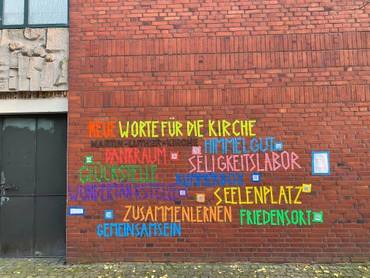 NEUE WORTE FÜR DIE KIRCHE
MARTIN-LUTHER-KIRCHE
HIMMELGUT
DANKRAUM
SELIGKEITSLABOR
GLÜCKSTELLE
KUMMERBOX
WUNDERTANKSTELLE
SEELENPLATZ
ZUSAMMENLERNEN
FRIEDENSORT
GEMEINSAMSEIN